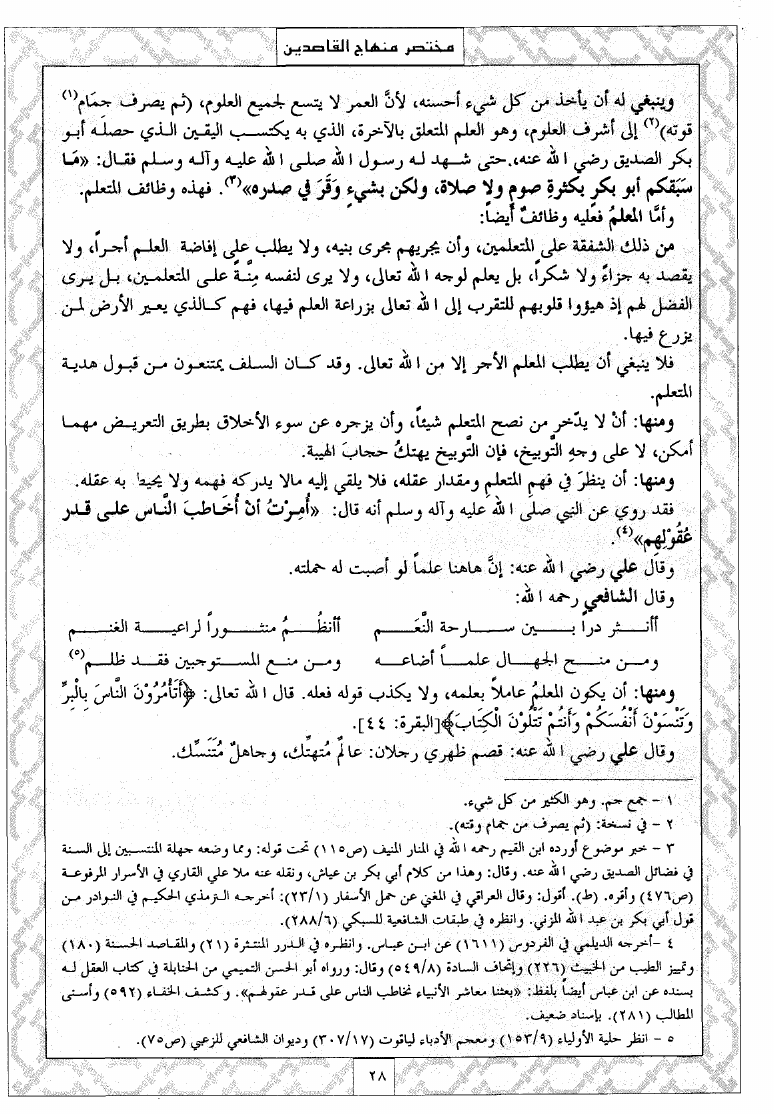 مختصر منهاج القاصدين
وينبغي له أن يأخذ من كل شيء أحسنه، لأنَّ العمر لا يتسع لجميع العلوم، (ثم يصرف جمَام(١)
قوته)(٢) إلى أشرف العلوم، وهو العلم المتعلق بالآخرة، الذي به يكتسب اليقين الذي حصله أبو
بكر الصديق رضي الله عنه، حتى شهد له رسول الله صلى الله عليه وآله وسلم فقال: «مَا
سَبَقكم أبو بكرٍ بكثرةِ صومٍ ولا صلاة، ولكن بشيءٍ وَقَرَ في صدره»(٣). فهذه وظائف المتعلم.
وأمَّا المعلمُ فعليه وظائفٌ أيضاً:
من ذلك الشفقة على المتعلمين، وأن يجريهم مجرى بنيه، ولا يطلب على إفاضة العلم أجراً، ولا
يقصد به جزاءً ولا شكراً، بل يعلم لوجه الله تعالى، ولا يرى لنفسه مِنَّةً على المتعلمين، بل يرى
الفضل لهم إذ هيؤوا قلوبهم للتقرب إلى الله تعالى بزراعة العلم فيها، فهم كالذي يعير الأرض لمن
يزرع فيها.
فلا ينبغي أن يطلب المعلم الأجر إلا من الله تعالى. وقد كان السلف يمتنعون من قبول هدية
المتعلم.
ومنها: أنْ لا يدّخر من نصح المتعلم شيئاً، وأن يزجره عن سوء الأخلاق بطريق التعريض مهما
أمكن، لا على وجهِ التَّوبيخ، فإن التَّوبيخ يهتكُ حجابَ الهيبة.
ومنها: أن ينظرَ في فهمِ المتعلمِ ومقدار عقله، فلا يلقي إليه مالا يدركه فهمه ولا يحيط به عقله.
فقد روي عن النبي صلى الله عليه وآله وسلم أنه قال: «أُمِرْتُ أنْ أُخَاطبَ النَّاس على قدر
عُقُوْلِهِم»(٤).
وقال علي رضي الله عنه: إنَّ هاهنا علماً لو أصبت له حملته.
وقال الشافعي رحمه الله:
أأنثر دراً بين سارحة النَّعَم أأنظُمُ منثوراً لراعية الغنم
ومن منح الجهال علماً أضاعه ومن منع المستوجبين فقد ظلم(٥)
ومنها: أن يكون المعلمُ عاملاً بعلمه، ولا يكذب قوله فعله. قال الله تعالى: ﴿أَتَأْمُرُوْنَ النَّاسَ بِالْبِرِّ
وَتَنْسَوْنَ أَنْفُسَكُمْ وَأَنتُمْ تَتْلُوْنَ الْكِتَابَ﴾[البقرة: ٤٤].
وقال علي رضي الله عنه: قصم ظهري رجلان: عالمٌ مُتهتِّك، وجاهلٌ مُتَنَسِّك.
١ - جمع جم. وهو الكثير من كل شيء.
٢ - في نسخة: (ثم يصرف من جمام وقته).
٣ - خبر موضوع أورده ابن القيم رحمه الله في المنار المنيف (ص١١٥) تحت قوله: ومما وضعه جهلة المنتسبين إلى السنة
في فضائل الصديق رضي الله عنه. وقال: وهذا من كلام أبي بكر بن عياش، ونقله عنه ملا علي القاري في الأسرار المرفوعة
(ص٤٧٦) وأقره. (ط). أقول: وقال العراقي في المغني عن حمل الأسفار (٢٣/١): أخرجه الترمذي الحكيم في النوادر من
قول أبي بكر بن عبد الله المزني. وانظره في طبقات الشافعية للسبكي (٢٨٨/٦).
٤ -أخرجه الديلمي في الفردوس (١٦١١) عن ابن عباس. وانظره في الدرر المنتثرة (٢١) والمقاصد الحسنة (١٨٠)
وتمييز الطيب من الخبيث (٢٢٦) وإتحاف السادة (٥٤٩/٨) وقال: ورواه أبو الحسن التميمي من الحنابلة في كتاب العقل له
بسنده عن ابن عباس أيضاً بلفظ: «بعثنا معاشر الأنبياء نخاطب الناس على قدر عقولهم». وكشف الخفاء (٥٩٢) وأسنى
المطالب (٢٨١). بإسناد ضعيف.
٥ - انظر حلية الأولياء (١٥٣/٩) ومعجم الأدباء لياقوت (٣٠٧/١٧) وديوان الشافعي للزعبي (ص٧٥).
٢٨